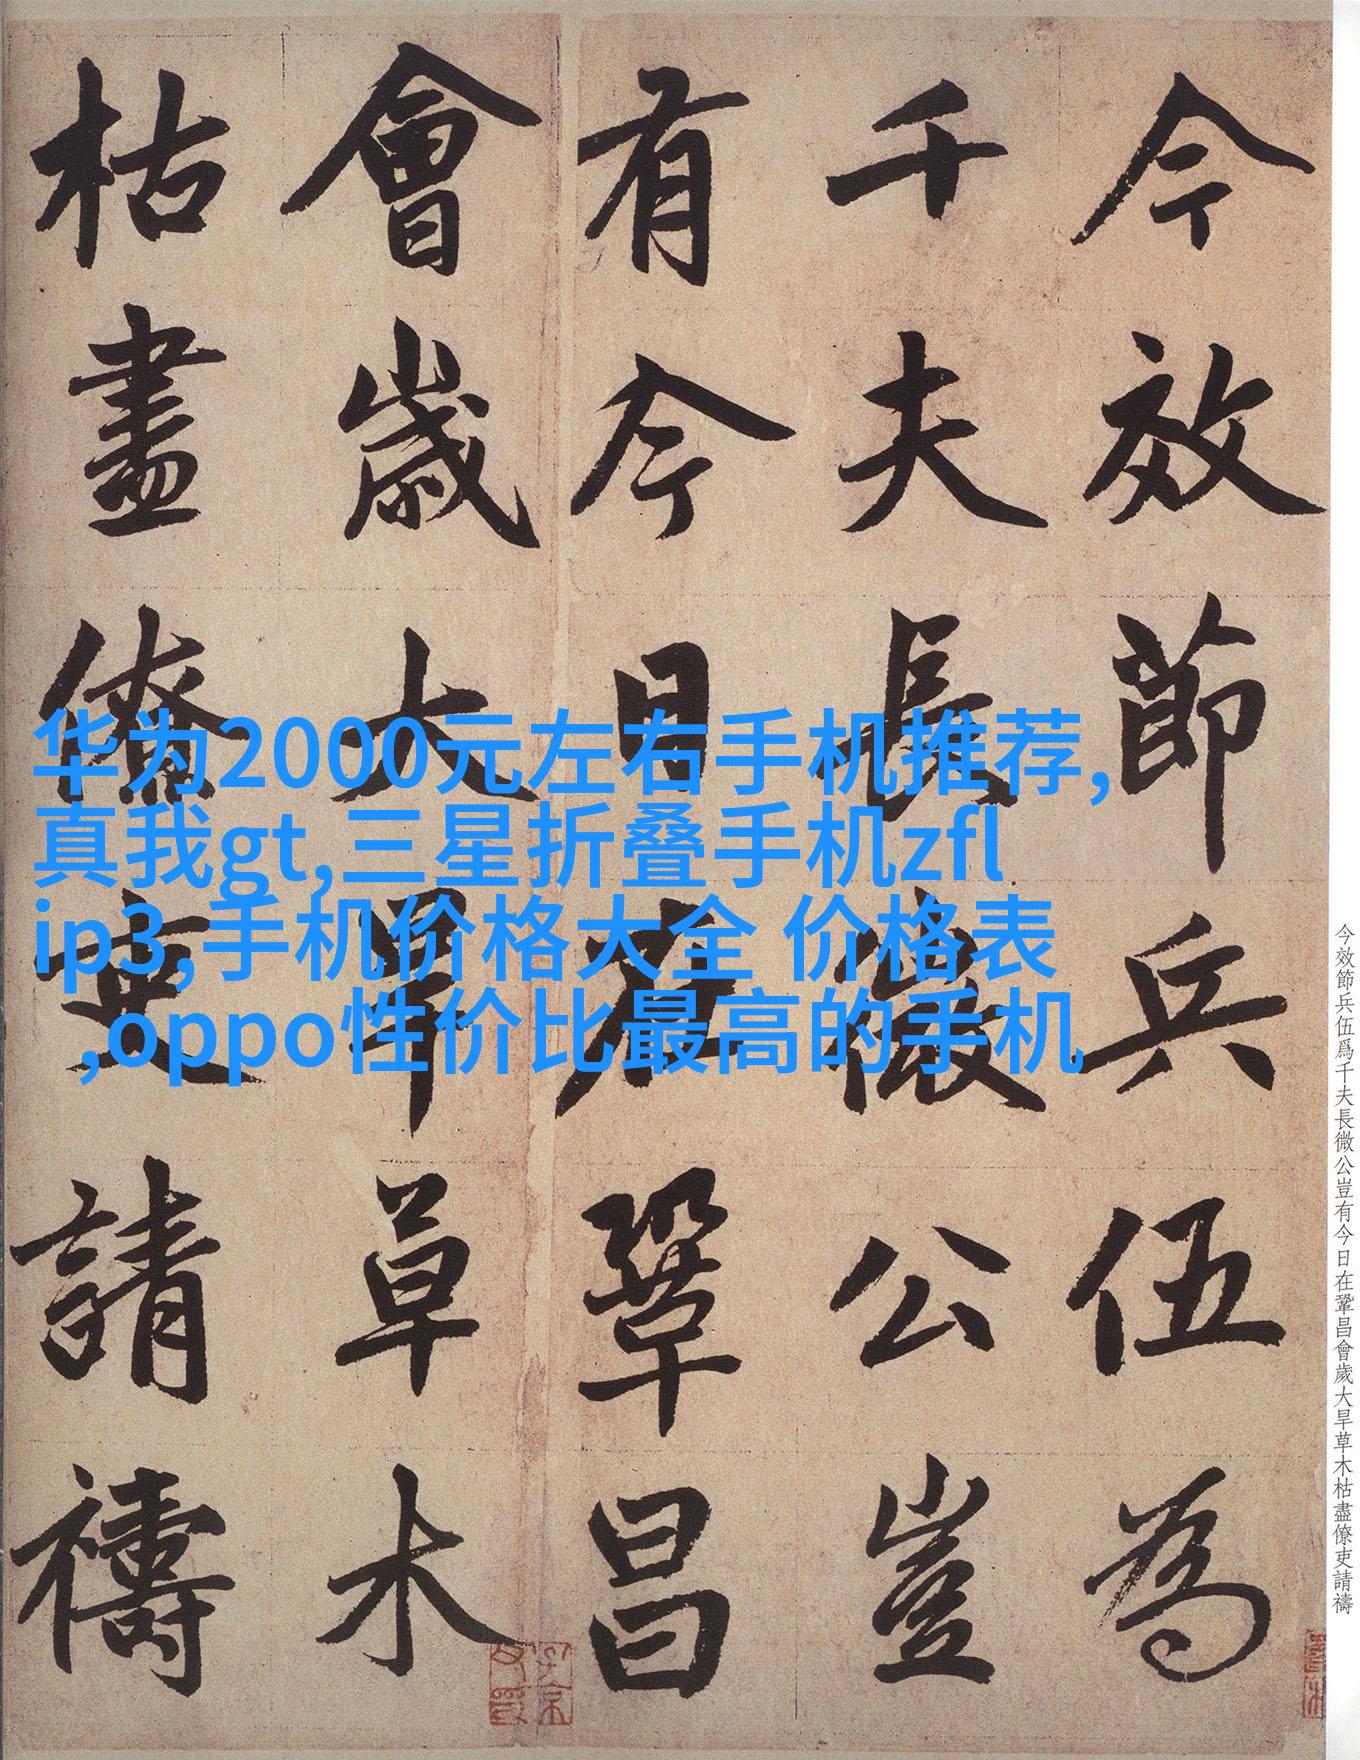 今效節兵伍為
千夫長微公豈
有今日在鞏昌
會歲大旱草木
枯盡僚吏請禱
华为2000元左右手机推荐,
真我gt,三星折叠手机zfl
ip3,手机价格大全 价格表
,oppo性价比最高的手机
今效節兵伍爲千夫長微公豈有今日在鞏昌會歲大旱草木枯盡僚吏請禱